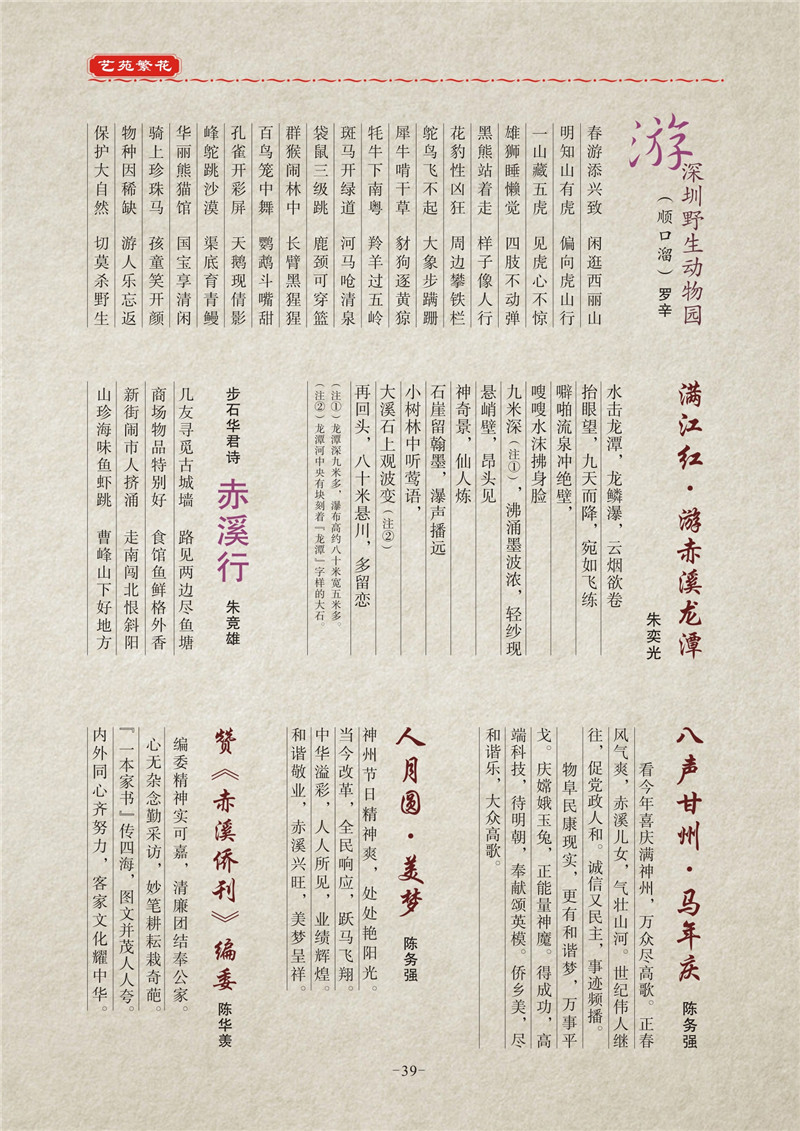 艺苑繁花
游深圳野生动物园
（顺口溜） 罗辛
春游添兴致 闲逛西丽山
明知山有虎 偏向虎山行
一山藏五虎 见虎心不惊
雄狮睡懒觉 四肢不动弹
黑熊站着走 样子像人行
花豹性凶狂 周边攀铁栏
鸵鸟飞不起 大象步蹒跚
犀牛啃干草 豺狗逐黄猄
牦牛下南粤 羚羊过五岭
斑马开绿道 河马呛清泉
袋鼠三级跳 鹿颈可穿篮
群猴闹林中 长臂黑猩猩
百鸟笼中舞 鹦鹉斗嘴甜
孔雀开彩屏 天鹅现倩影
峰鸵跳沙漠 渠底育青鳗
华丽熊猫馆 国宝享清闲
骑上珍珠马 孩童笑开颜
物种因稀缺 游人乐忘返
保护大自然 切莫杀野生
满江红·游赤溪龙潭
朱奕光
水击龙潭，龙鳞瀑，云烟欲卷
抬眼望，九天而降，宛如飞练
噼啪流泉冲绝壁，
嗖嗖水沫拂身脸
九米深（注①），沸涌墨波浓，轻纱现
悬峭壁，昂头见
神奇景，仙人炼
石崖留翰墨，瀑声播远
小树林中听莺语，
大溪石上观波变（注②）
再回头，八十米悬川，多留恋
（注①）龙潭深九米多，瀑布高约八十米宽五米多。
（注②）龙潭河中央有块刻着『龙潭』字样的大石
步石华君诗 赤溪行 朱竞雄
几友寻觅古城墙 路见两边尽鱼塘
商场物品特别好 食馆鱼鲜格外香
新街闹市人挤涌 走南闯北恨斜阳
山珍海味鱼虾跳 曹峰山下好地方
八声甘州·马年庆 陈务强
看今年喜庆满神州，万众尽高歌。正春
风气爽，赤溪儿女，气壮山河。世纪伟人继
往，促党政人和。诚信又民主，事迹频播。
物阜民康现实，更有和谐梦，万事平
戈。庆嫦娥玉兔，正能量神魔。得成功，高
端科技，待明朝，奉献颂英模。侨乡美，尽
和谐乐，大众高歌。
人月圆·美梦 陈务强
神州节日精神爽，处处艳阳光。
当今改革，全民响应，跃马飞翔。
中华溢彩，人人所见，业绩辉煌。
和谐敬业，赤溪兴旺，美梦呈祥。
赞《赤溪侨刊》编委 陈华羡
编委精神实可嘉，清廉团结奉公家。
心无杂念勤采访，妙笔耕耘栽奇葩。
『一本家书』传四海，图文并茂人人夸。
内外同心齐努力，客家文化耀中华。
-39-